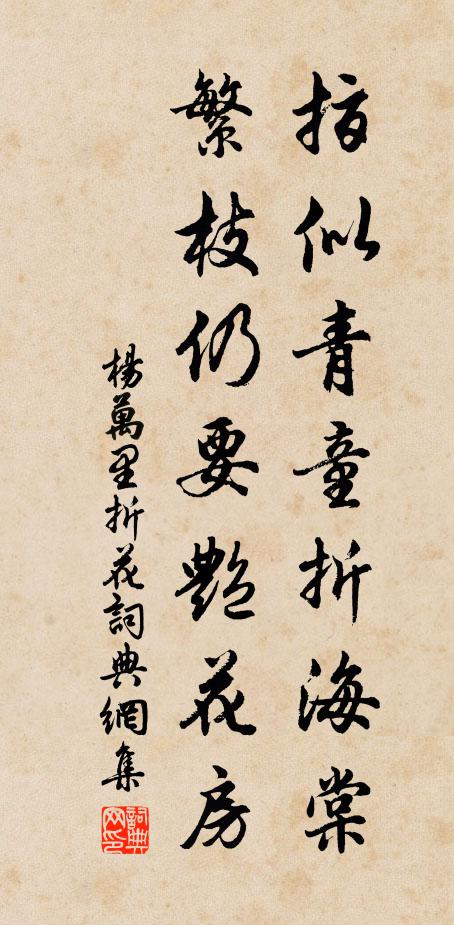 指似青童折海棠
繁枝仍要艶花房
楊萬里折花詞典網集
詞典网印